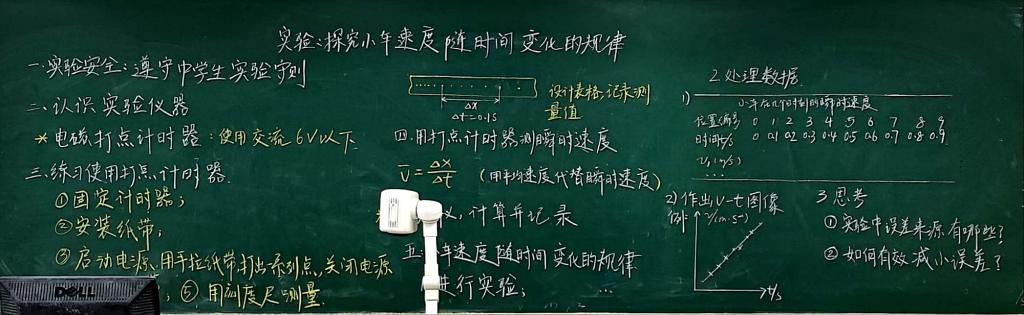 实验:探究小车速度随时间变化的规律
一.实验安全:遵守中学生实验守则
二.认识实验仪器
*电磁打点计时器:使用交流6V以下
三.练习使用打点计时器
①固定计时器;
②安装纸带;
③启动电源.用手拉纸带打出系列点.关闭电源
;⑤用刻度尺测量.
DELL
Δx
Δt=0.1s
设计表格,记录测
量值
四.用打点计时器测瞬时速度
v=Δx/Δt (用平均速度代替瞬时速度)
义,计算并记录
五.小车速度随时间变化的规律
进行实验;
2.处理数据
1) 小车在几个时刻的瞬时速度
位置编号 0 1 2 3 4 5 6 7 8 9
时间t/s 0 0.1 0.2 0.3 0.4 0.5 0.6 0.7 0.8 0.9
v₁(m/s)
...
2)作出v-t图像
v/(m·s⁻¹)
t/s
3.思考
①实验中误差来源有哪些?
②如何有效减小误差?